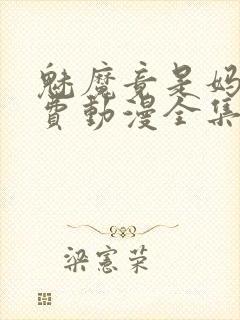 魅魔竟是妈
费动漫全集
梁宪荣